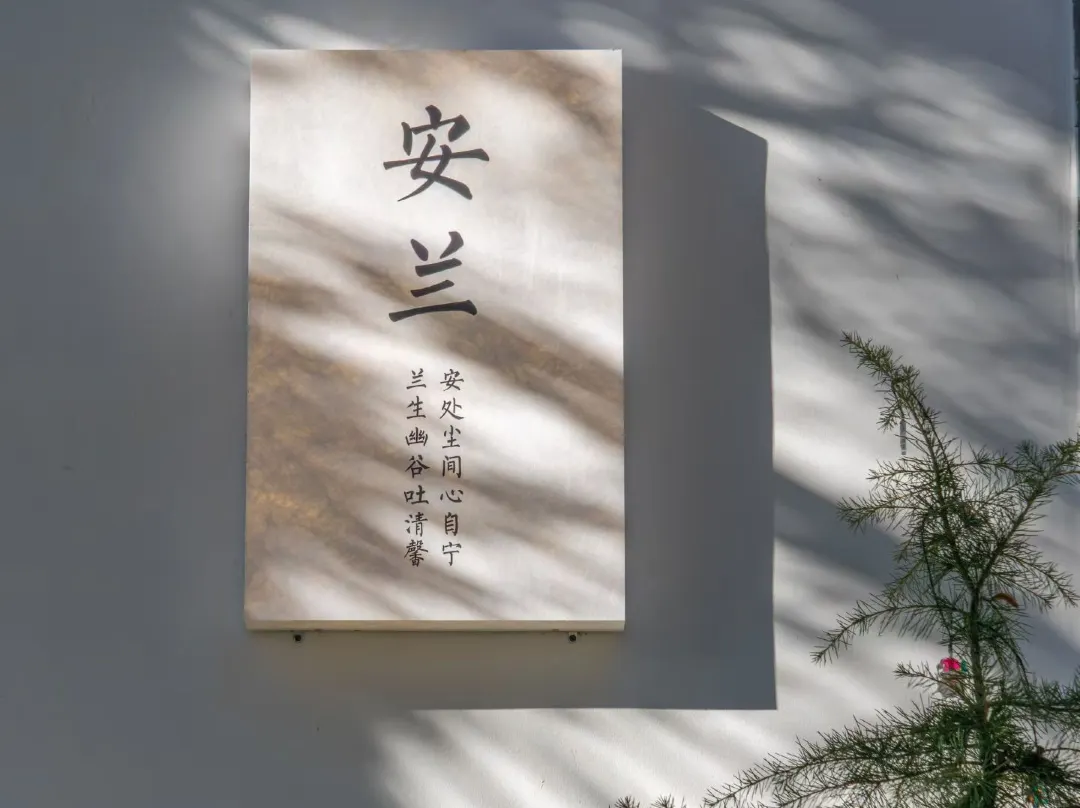 安兰
安处尘间心自宁
兰生幽谷吐清馨